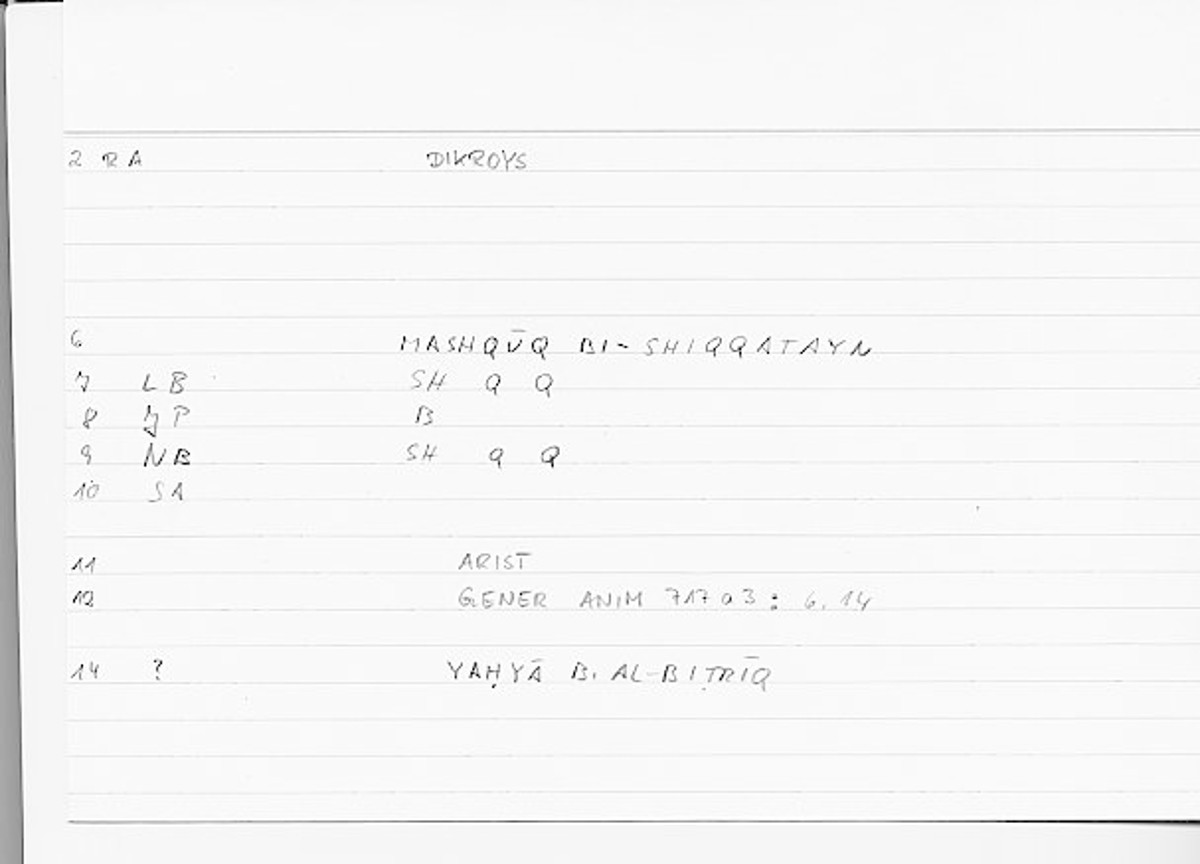 2 RA DIKROYS
6 MASHQŪQ BI-SHIQQATAYN
7 LB SH Q Q
8 JP B
9 NB SH Q Q
10 SA
11 ARIST
12 GENER ANIM 717a3: 6.14
14 ? YAḤYĀ B. AL-BIṬRĪQ